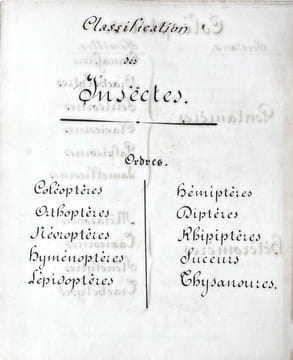 Classification
des
Insectes.
Ordres.
Coléoptères
Orthoptères
Névroptères
Hyménoptères
Lépidoptères
Hémiptères
Diptères
Rhipiptères
Suceurs
Thysanoures.